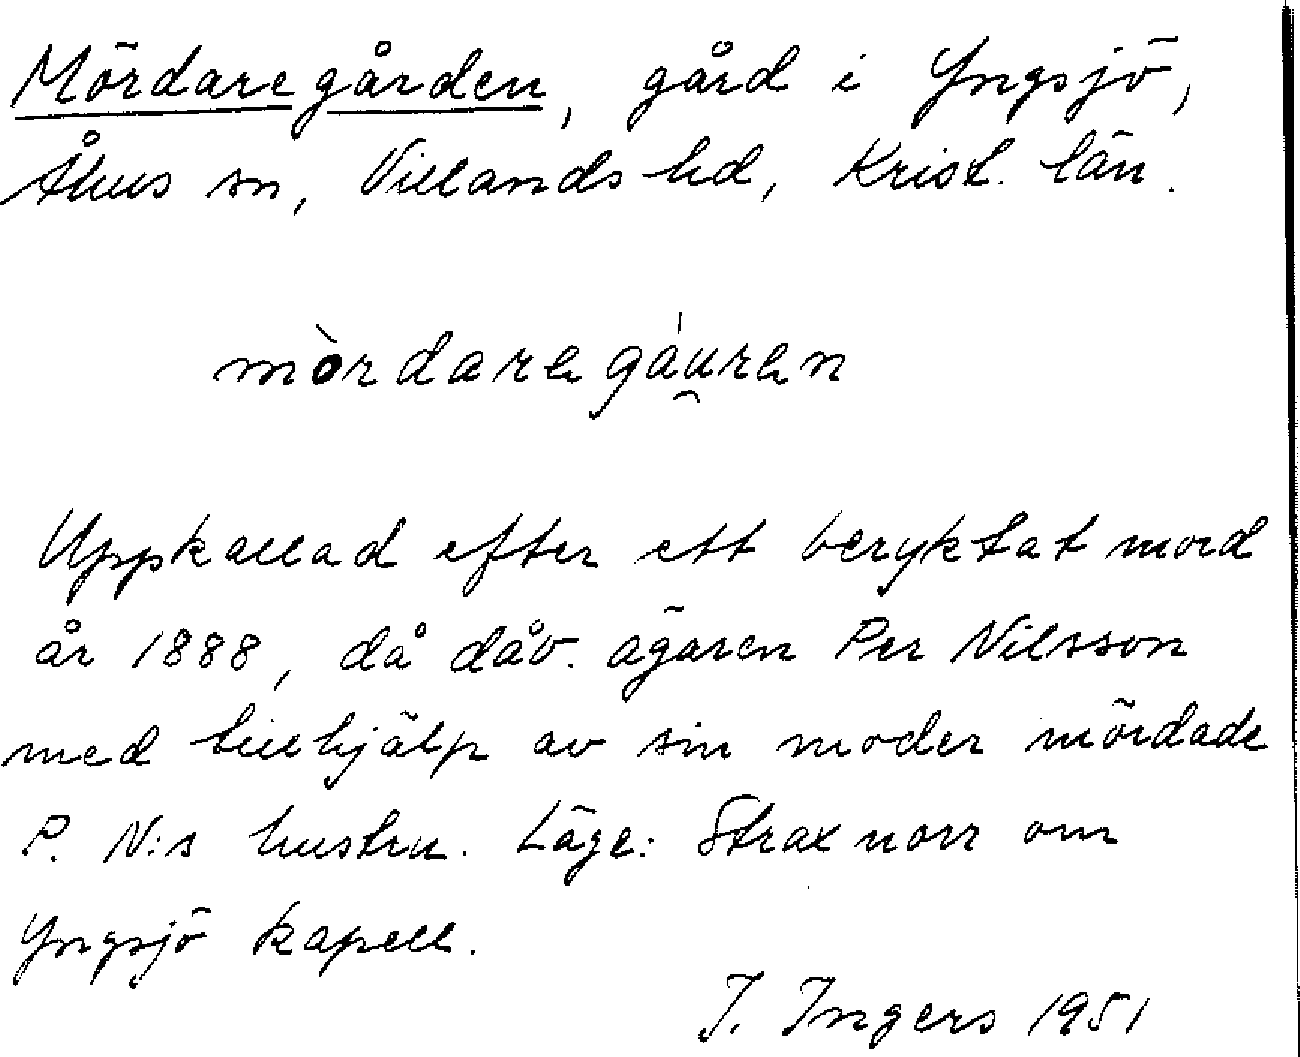 Mördaregården, gård i Yngsjö,
Åhus sn, Villands hd, Krist. län.
mòrdarega̍u̯ren
Uppkallad efter ett beryktat mord
år 1888, då dåv. ägaren Per Nilsson
med tillhjälp av sin moder mördade
P. N:s hustru. Läge: Strax norr om
Yngsjö kapell.
I. Ingers 1951